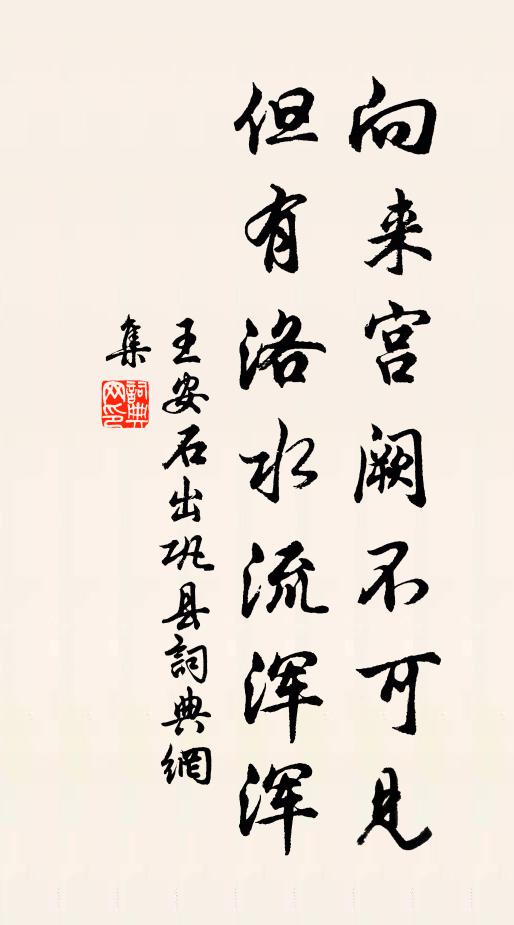 向来宫阙不可见
但有洛水流浑浑
王安石出巩县詞典網
集
詞典网印